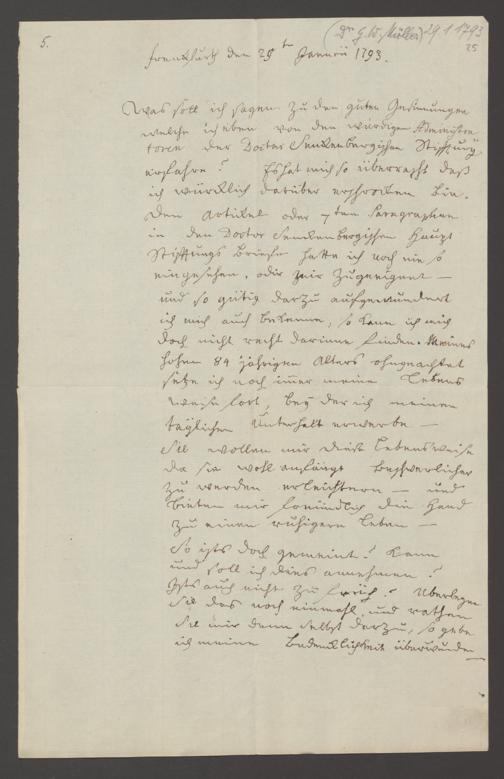 5.
(Dr. G. W. Müller) 29 1 1793
25
Frankfurth den 29ten Januari 1793.
Was soll ich sagen zu den guten Gesinnungen
welche ich eben von den würdigen Administra
toren der Doctor Senkenbergischen Stifftung
erfahre? Es hat mich so überrascht daß
ich würcklich darüber erschrocken bin.
Den Artickel oder 7ten Paragraphen
in den Doctor Senckenbergischen Haupt
Stifftungs Briefe hatte ich noch nie so
eingesehen, oder mir zugeeignet —
und so gütig darzu aufgemundert
ich mich auch bekenne, so kann ich mich
doch nicht recht darinne finden. Meines
hohen 84 jährigen Alters ohngeachtet
setze ich noch immer meine Lebens
weise fort, bey der ich meinen
täglichen Unterhalt erwerbe —
Sie wollen mir diese Lebensweise
da sie wohl anfängt beschwerlicher
zu werden erleichtern — und
bieten mir freundlich die Hand
zu einem ruhigern Leben —
So ists doch gemeint? Kann
und soll ich dies annehmen?
Ists auch nicht zu früh? Überlegen
Sie das noch einmahl, und rathen
Sie mir denn selbst darzu, so gebe
ich meine Bedencklichkeit überwunden